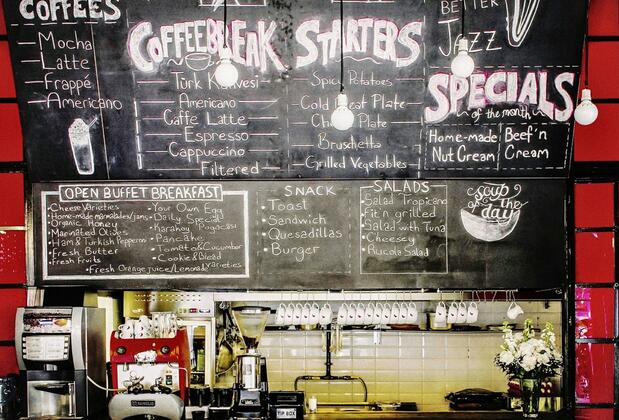 COFFEES
Mocha
Latte
Frappé
Americano
COFFEEBREAK
Türk Kahvesi
Americano
Caffe Latte
Espresso
Cappuccino
Filtered
STARTERS
Spicy Potatoes
Cold Meat Plate
Cheese Plate
Bruschetta
Grilled Vegetables
BETTER
JAZZ
SPECIALS
of the month
Home-made
Nut Cream
Beef'n
Cream
OPEN BUFFET BREAKFAST
Cheese Varieties
Home-made marmalades/jams
Organic Honey
Marinated Olives
Ham & Turkish Pepperoni
Fresh Butter
Fresh Fruits
Fresh Orange juice/Lemonade varieties
Your Own Egg
Daily Special
Karaköy Poğaçası
Pancake
Tomato & Cucumber
Cookie & Bread
SNACK
Toast
Sandwich
Quesadillas
Burger
SALADS
Salad Tropicano
Fit'n grilled
Salad with Tuna
Cheesey
Rucola Salad
soup
of
the
day
TIP BOX